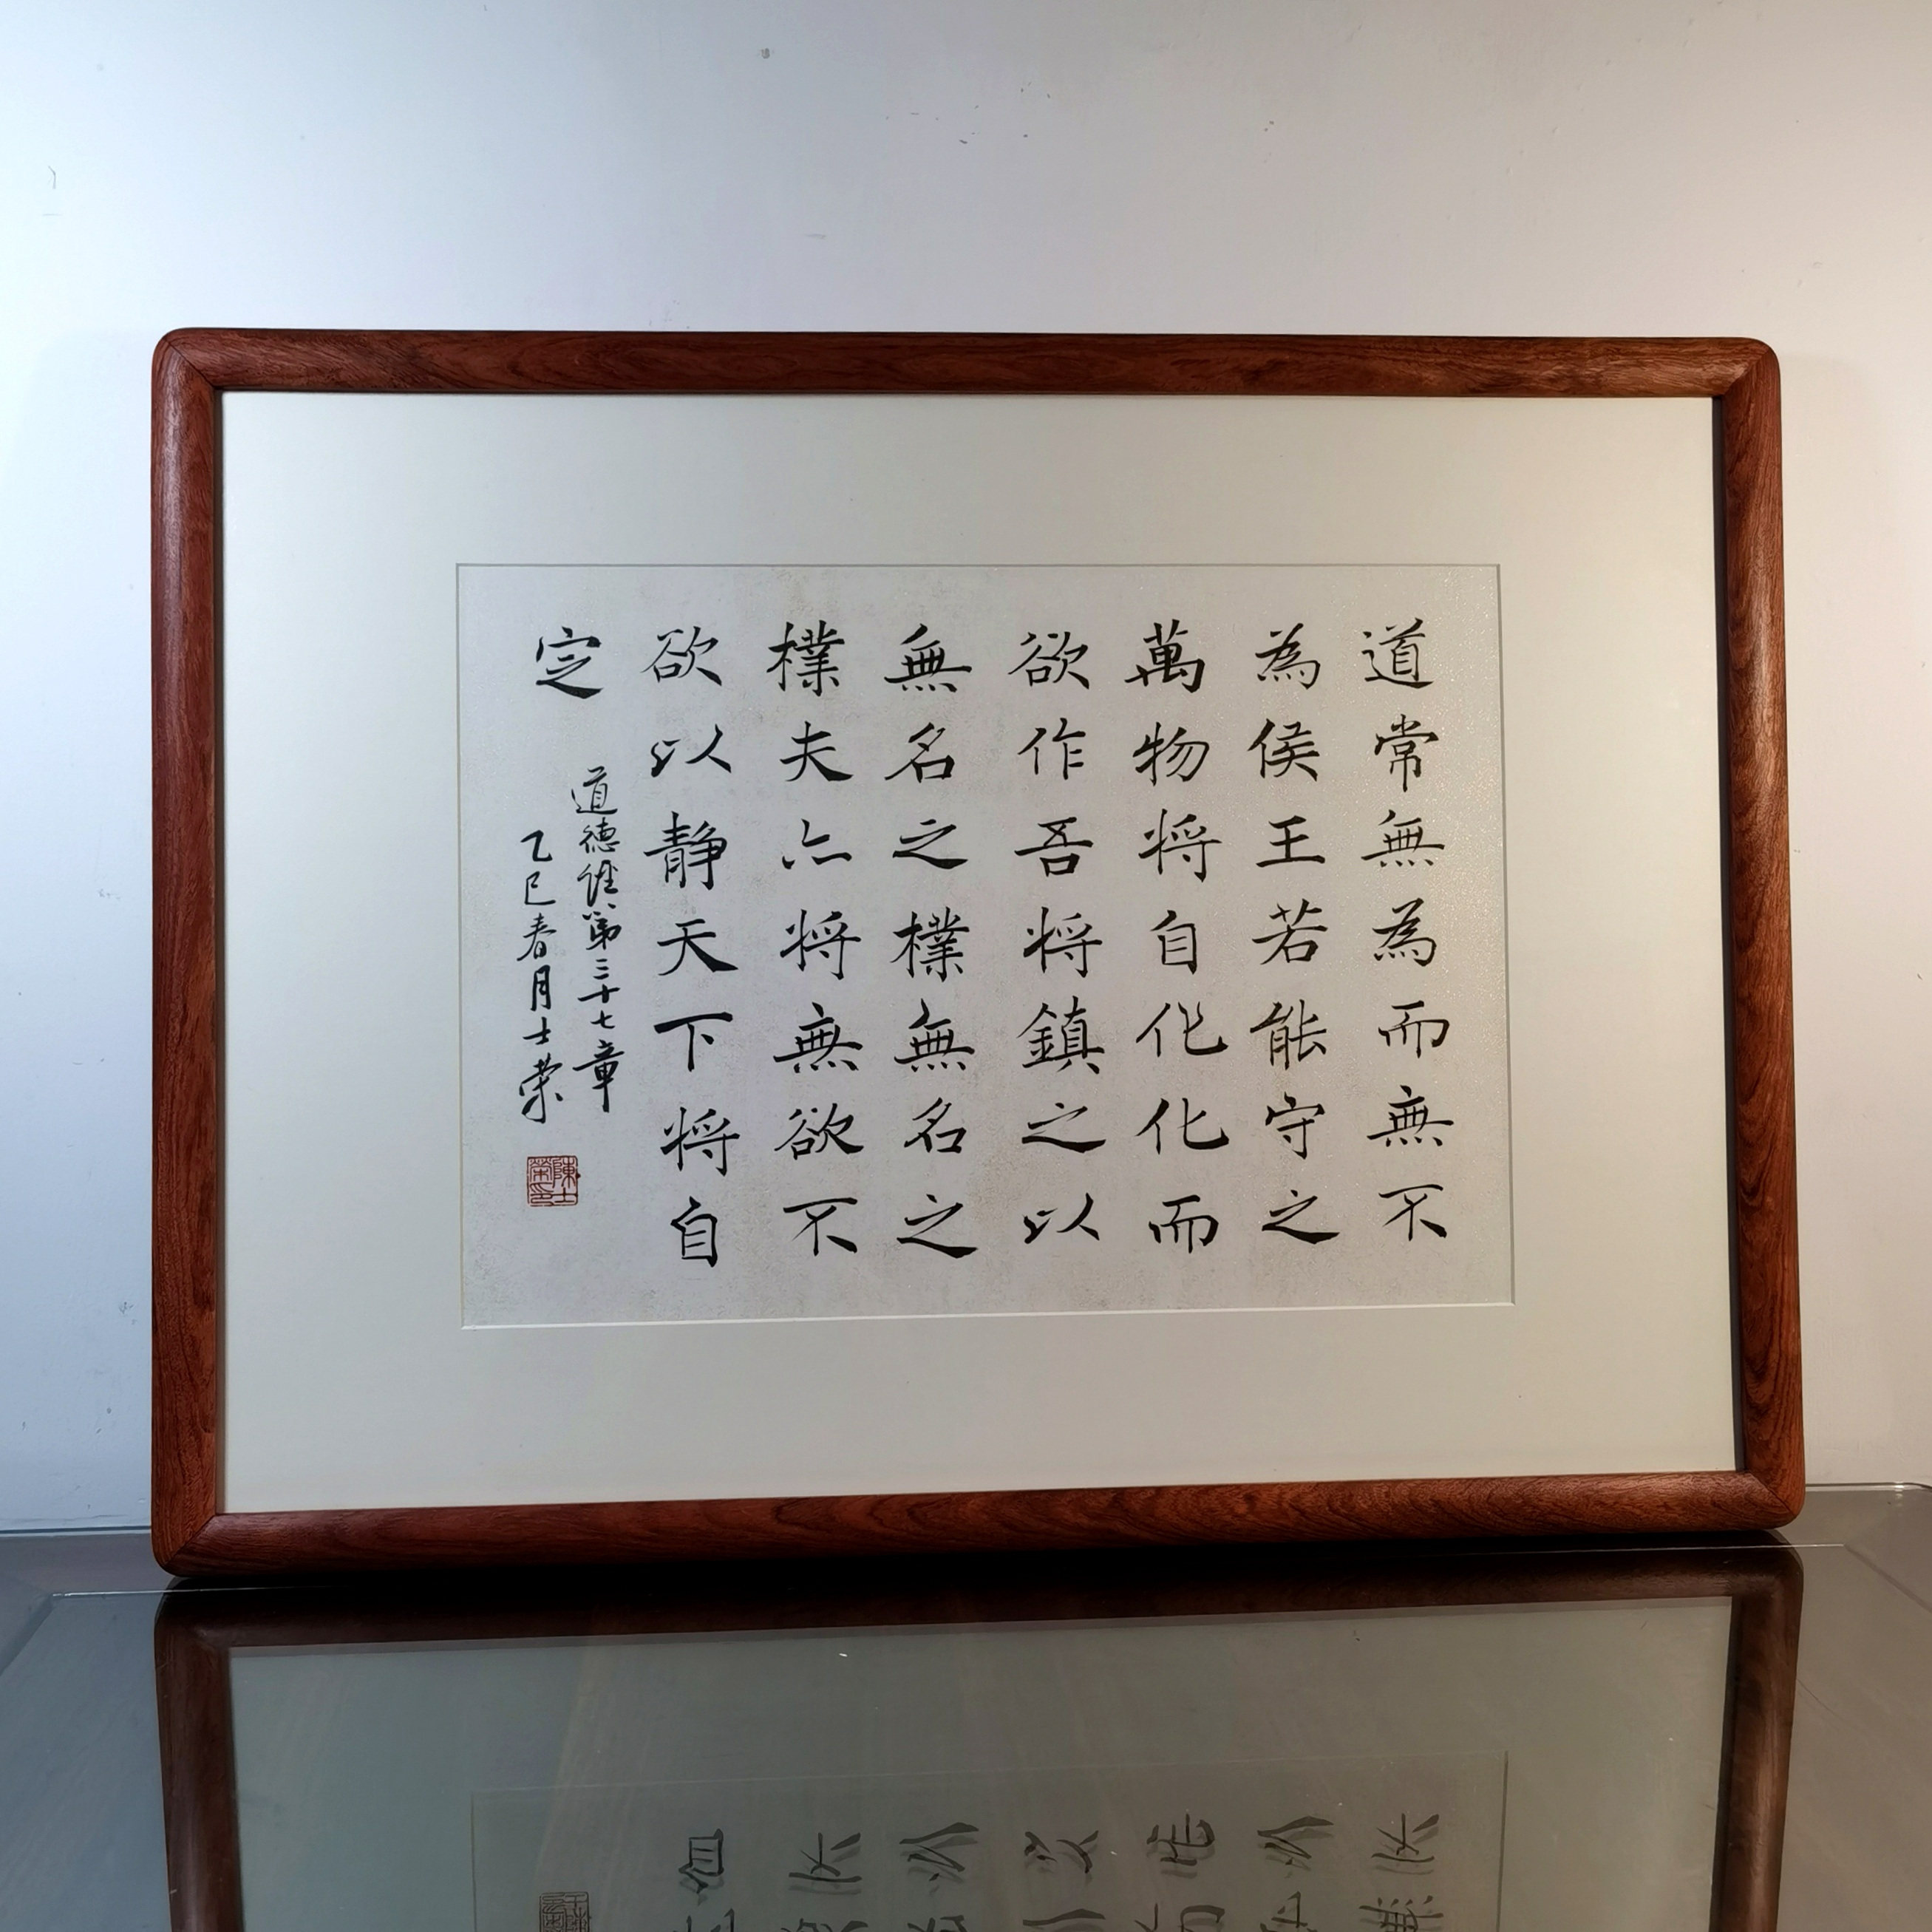 道常無為而無不
為侯王若能守之
萬物将自化化而
欲作吾将鎮之以
無名之樸無名之
樸夫亦将無欲不
欲以静天下将自
定
道德经第三十七章
乙巳春月士荣
陳士榮印